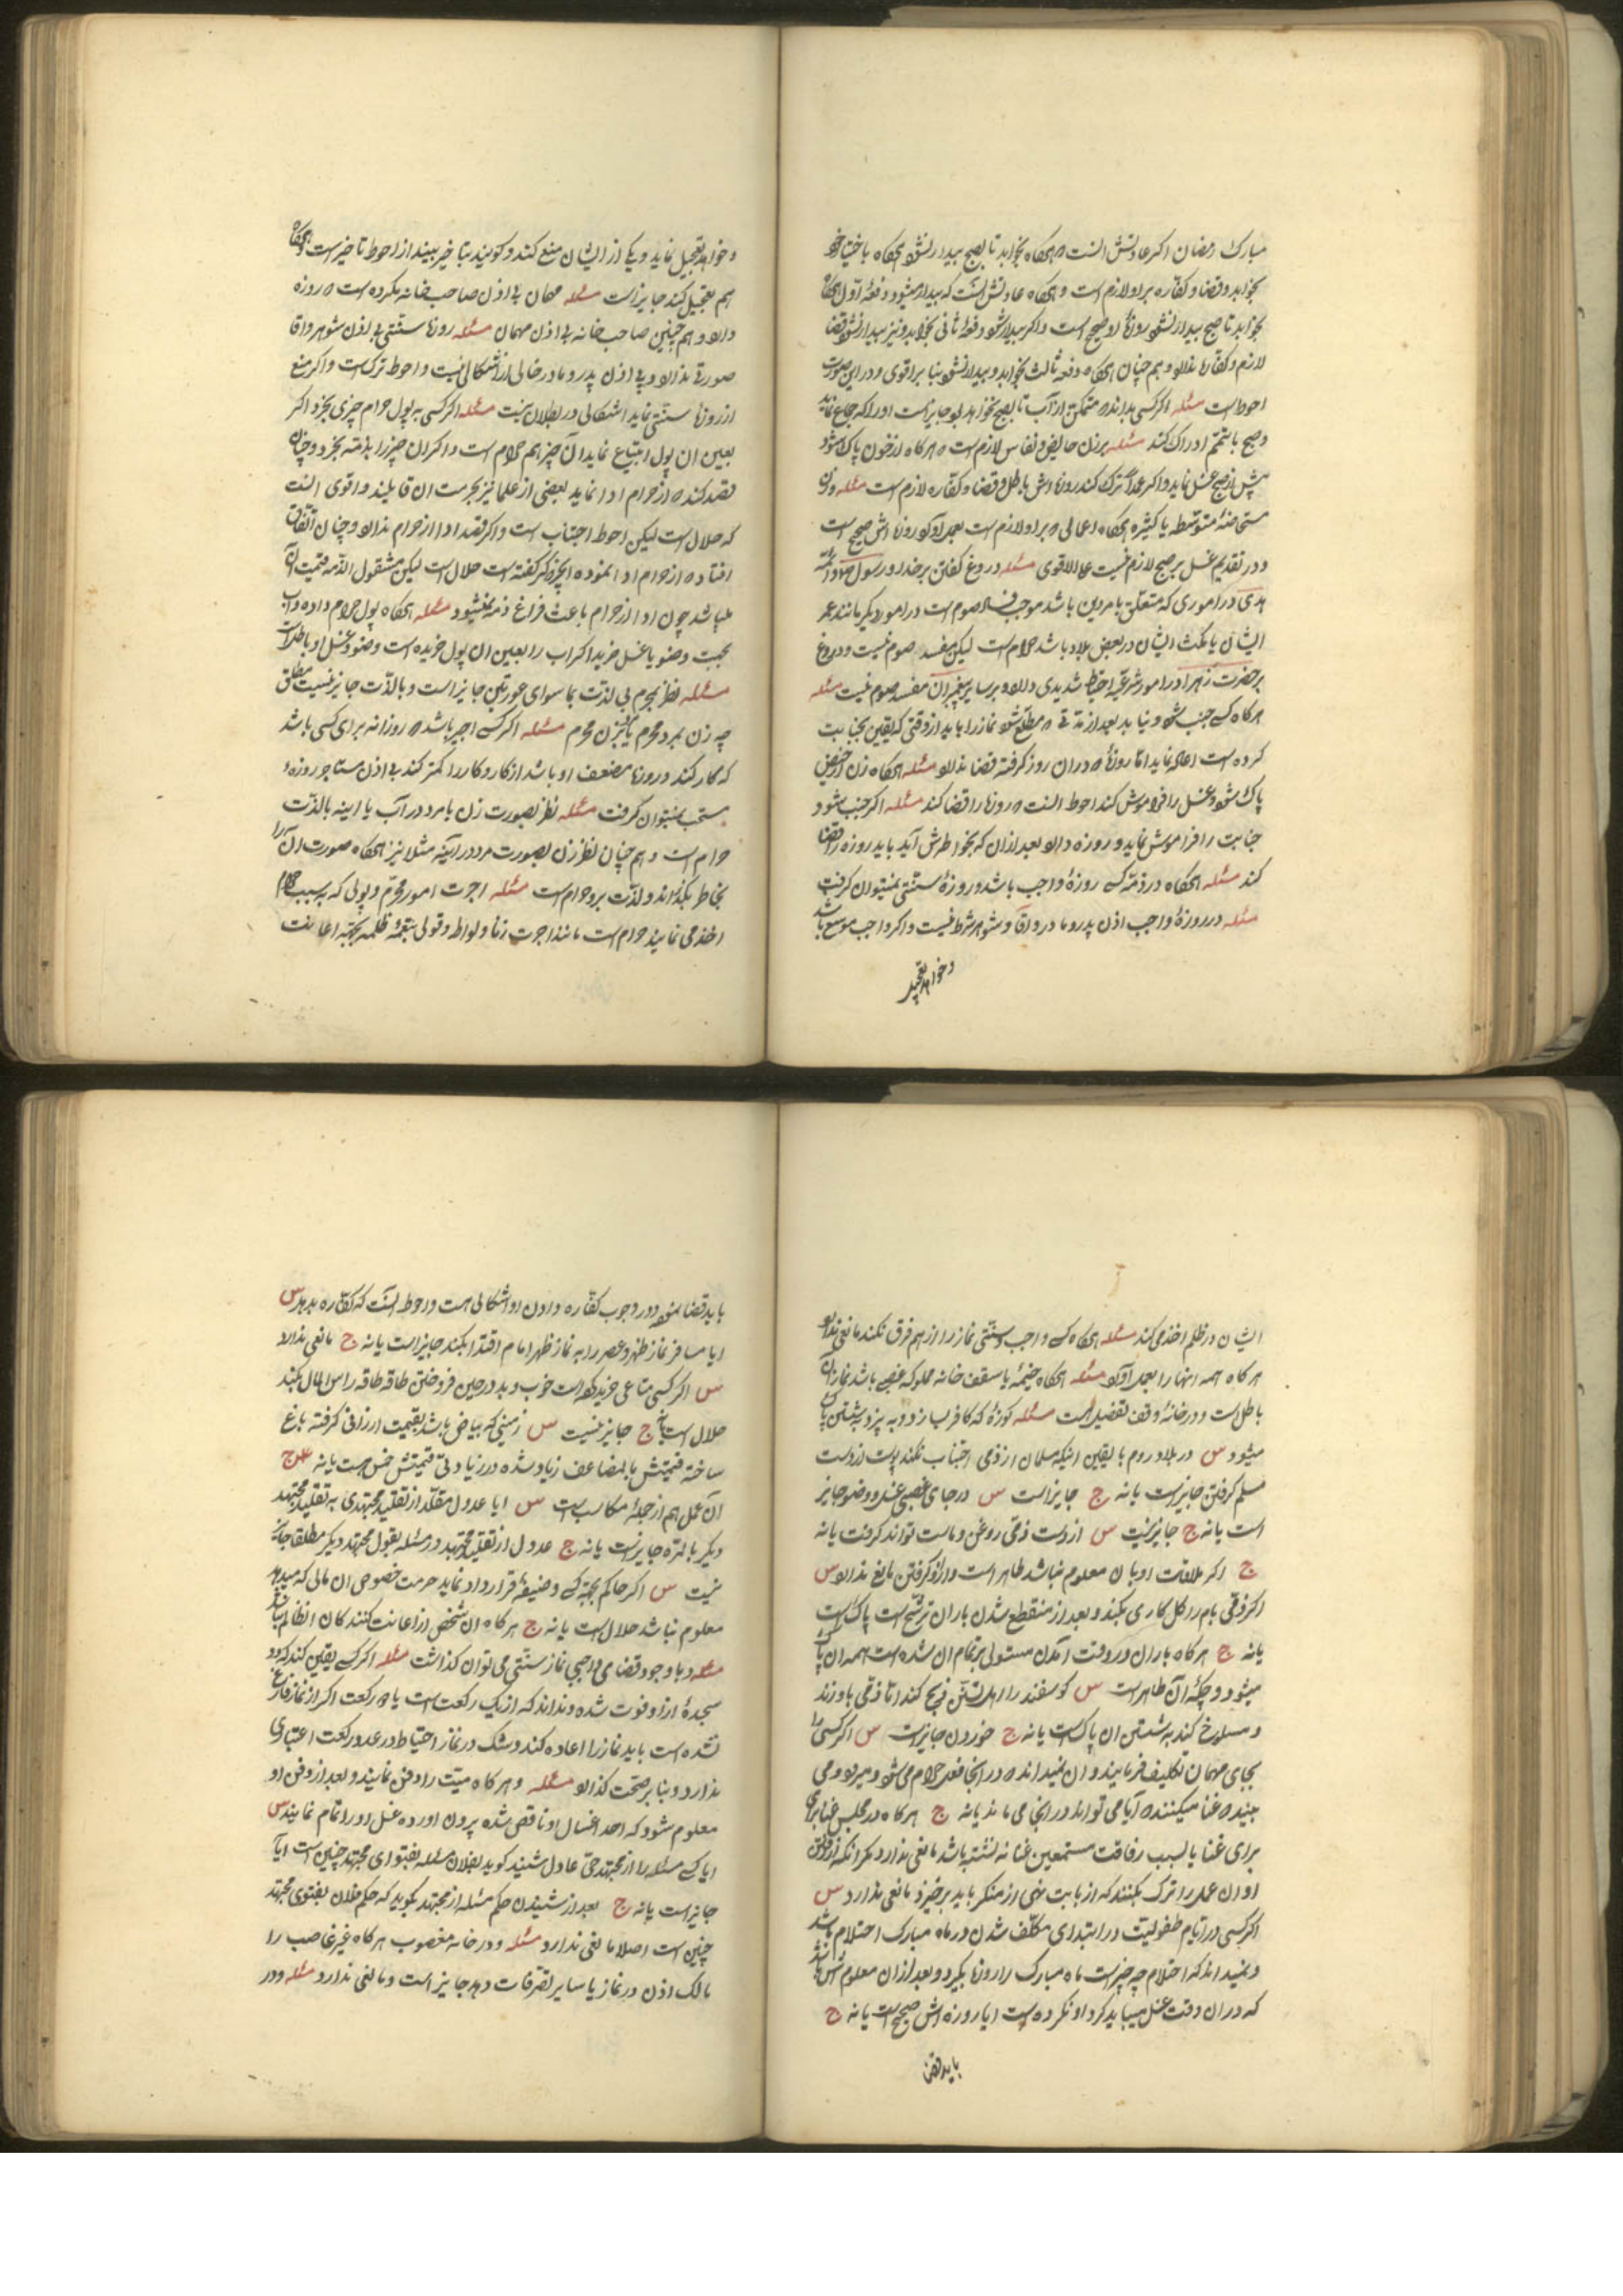 مبارک رمضان اکر عادتش اینست که هرکاه بخوابد تا صبح بیدار نشود هرکاه باختیار خود
بخوابد و قضا و کفاره بر او لازم است و هرکاه عادتش اینست که بیدار میشود و دفعهٔ اول هرکاه
بخوابد تا صبح بیدار نشود روزهٔ او صحیح است و اکر بیدار شود و دفعهٔ ثانی بخوابد و نیز بیدار نشود قضا
لازم و کفاره ندارد و هم چنان هرکاه دفعه ثالث بخوابد و بیدار نشود بنا بر اقوی و در این صورت
احوط است مسئله اکر کسی بداند که متمکن از آب تا بصبح نخواهد بود جایز است او را که جماع نماید
و صبح با تیمم ادراک کند مسئله بر زن حایض و نفاس لازم است که هرکاه از خون پاک شود
پیش از صبح غسل نماید و اکر عمداً ترک کند روزه اش باطل و قضا و کفاره لازم است مسئله و زن
مستحاضهٔ متوسطه یا کثیره هرکاه اعمالی که بر او لازم است بعمل آورد روزه اش صحیح است
و در تقدیم غسل بر صبح لازم نیست علی الاقوی مسئله دروغ گفتن بر خدا و رسول و ائمه
هدی در اموری که متعلق بامر دین باشد موجب فساد صوم است در امور دیکر مانند عمر
ایشان یا مکث ایشان در بعض بلاد باشد حرام است لیکن مفسد صوم نیست و دروغ
بر حضرت زهرا در امور شرعیه احتیاط شدیدی دارد و بر سایر پیغمبران مفسد صوم نیست مسئله
هرکاه کسی جنب شود و نیابد بعد از مدتی که مطلع شود نماز را باید از وقتی که یقین بجنابت
کرده است اعاده نماید اما روزهٔ که در ان روز کرفته قضا ندارد مسئله هرکاه زن از حیض
پاک شود و غسل را فراموش کند احوط اینست که روزه را قضا کند مسئله اکر جنب شود و
جنابت را فراموش نماید و روزه دارد بعد از ان که بخواطرش آید باید روزه را قضا
کند مسئله هرکاه در ذمه کسی روزهٔ واجب باشد و روزهٔ سنتی نمیتوان کرفت
مسئله در روزهٔ واجب اذن پدر و مادر و آقا و شوهر شرط نیست و اکر واجب موسع باشد
و خواهد تعجیل
و خواهد تعجیل نماید و یکی از ایشان منع کند و کویند بتاخیر بیند از احوط تاخیر است و هرکاه
هم تعجیل کند جایز است مسئله مهمان بی اذن صاحب خانه مکروه است که روزه
دارد و هم چنین صاحب خانه بی اذن مهمان مسئله روزهٔ سنتی بی اذن شوهر و اقا
صورتی ندارد و بی اذن پدر و مادر خالی از اشکالی نیست و احوط ترک است و اکر منع
از روزهٔ سنتی نماید اشکالی در بطلان نیست مسئله اکر کسی به پول حرام چیزی بخرد اکر
بعین ان پول ابتیاع نماید آن چیز هم حرام است و اکر ان چیز را بذمه بخرد و چنان
قصد کند که از حرام ادا نماید بعضی از علما نیز بحرمت ان قایلند و اقوی اینست
که حلال است لیکن احوط اجتناب است و اکر قصد ادا از حرام ندارد و چنان اتفاق
افتاد که از حرام ادا نموده انچیز که گفته است حلال است لیکن مشغول الذمه قیمت آن
میباشد چون ادا از حرام باعث فراغ ذمه نمیشود مسئله هرکاه پول حرام داده و آب
بجهت وضو یا غسل خرید اکر اب را بعین ان پول خریده است وضو و غسل او باطل است
مسئله نظر بمحرم بی لذت بما سوای عورتین جایز است و بالذت جایز نیست مطلق
چه زن بمرد محرم یا بزن محرم مسئله اکر کسی اجیر باشد که روزانه برای کسی باشد
که کار کند و روزه مضعف او باشد از کار و کار را کمتر کند بی اذن مستاجر روزهٔ
مستحب نمیتوان کرفت مسئله نظر بصورت زن یا مرد در آب یا اینه بالذت
حرام است و هم چنان نظر زن بصورت مرد در آینه مثلا نیز هرکاه صورت ان را
بخاطر بکذراند و لذت برد حرام است مسئله اجرت امور محرم و پولی که به سبب حرام
اخذ می نمایند حرام است مانند اجرت زنا و لواط و قولی بتعمهٔ ظلمه بجهة اعانت
ایشان در ظلم اخذ می کند مسئله هرکاه کسی واجب و سنتی نماز را از هم فرق نکند مانعی ندارد
هرکاه همه انها را بعمل آورد مسئله هرکاه خیمهٔ یا سقف خانه مملوکه غصبی باشد نماز در ان
باطل است و در خانهٔ وقف تفضیل است مسئله کوزهٔ که کافر بسازد و به پزد بشستن پاک
میشود س در بلاد روم با یقین اینکه مسلمان از ذمی اجتناب نمکند پوست از دست
مسلم کرفتن جایز است یا نه ج جایز است س در جای غصبی غسل و وضو جایز
است یا نه ج جایز نیست س از دست ذمی روغن و ماست تواند کرفت یا نه
ج اکر ملاقات او با ان معلوم نباشد طاهر است و از او کرفتن مانع ندارد س
اکر ذمی بام را کل کاری بکند و بعد از منقطع شدن باران ترشح است پاک است
یا نه ج هرکاه باران در وقت امدن مستولی بر تمام ان شده است همه ان پاک
میشود و چکهٔ آن طاهر است س کوسفند را اهل تسنن ذبح کند اما ذمی باو زند
و مسلوخ کند به شستن ان پاک است یا نه ج خوردن جایز است س اکر کسی را
بجای مهمان تکلیف فرمایند و ان نمیداند که در انجا فعل حرام می شود میرود و می
بیند که غنا میکنند که آیا می تواند در انجا می ماند یا نه ج هرکاه در مجلس غنا برای
برای غنا یا بسبب رفاقت مستمعین غنا نه نشسته باشد مانعی ندارد مکر انکه از رفتن
او ان عمل را ترک بکنند که از بابت نهی از منکر باید برخیزد مانعی ندارد س
اکر کسی در ایام طفولیت در ابتدای مکلف شدن در ماه مبارک احتلام باشد
و نمیداند که احتلام چه چیز است ماه مبارک را روزه بکیرد و بعد از ان معلومش باشد
که در ان وقت غسل میباید کرد او نکرده است ایا روزه اش صحیح است یا نه ج
باید قضا
باید قضا نمود و در وجوب کفاره دادن او اشکالی هست و احوط اینست که کفاره بدهد س
ایا مسافر نماز ظهر و عصر را به نماز ظهر امام اقتدا بکند جایز است یا نه ج مانعی ندارد
س اکر کسی متاعی خریده است خوب و بد در حین فروختن طاقه طاقه راس المال بکند
حلال است یا نه ج جایز نیست س زمینی که بیاض باشد بقیمت ارزانی کرفته باغ
ساخته قیمتش بالمضاعف زیاد شده در زیادتی قیمتش خمس هست یا نه ج
آن عمل هم از جملهٔ مکاسب است س ایا عدول مقلد از تقلید مجتهدی به تقلید مجتهد
دیکر بالمره جایز است یا نه ج عدول از تقلید مجتهد در مسئله بقول مجتهد دیکر مطلقا جایز
نیست س اکر حاکم بجهة کسی وضیفهٔ قرارداد نماید حرمت خصوص ان مالی که میدهد
معلوم نباشد حلال است یا نه ج هرکاه ان شخص از اعانت کنندکان ان ظالم نباشد
مسئله و با وجود قضا می واجبی نماز سنتی می توان کذاشت مسئله اکر کسی یقین کند که دو
سجدهٔ از او فوت شده و نداند که از یک رکعت است یا دو رکعت اکر از نماز فارغ
نشده است باید نماز را اعاده کند و شک در نماز احتیاط در عدد رکعت اعتباری
ندارد و بنا بر صحت کذارد مسئله و هرکاه میّت را دفن نمایند و بعد از دفن او
معلوم شود که احد اغسال او ناقص شده بیرون اورده غسل او را تمام نمایند س
ایا کسی مسئله را از مجتهد حی عادل شنید کوید بفلان مسئله بفتوای مجتهد چنین است ایا
جایز است یا نه ج بعد از شنیدن حکم مسئله از مجتهد بکوید که حکم فلان بفتوی مجتهد
چنین است اصلا مانعی ندارد مسئله و در خانه مغصوب هرکاه غیر غاصب را
مالک اذن در نماز یا سایر تصرفات دهد جایز است و مانعی ندارد مسئله و در